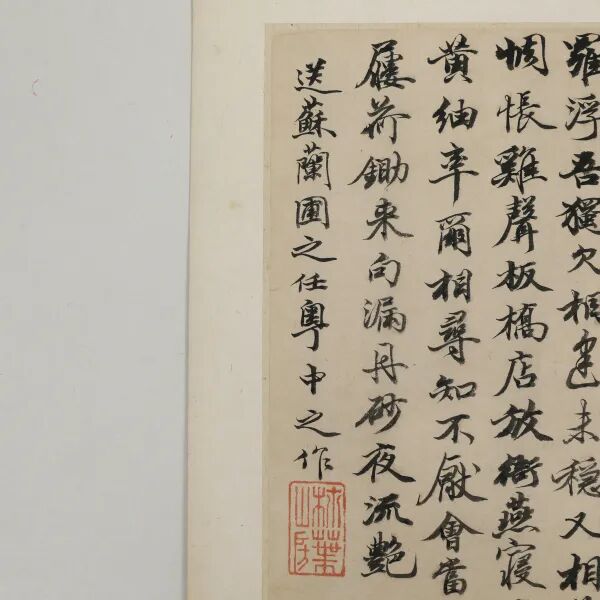 羅浮吾獨欠相逢未穩又相
惆悵雞聲板橋店放衙燕寢
黃紬率爾相尋知不厭會當
屨荷鋤來向漏丹砂夜流艷
送蘇蘭圃之任粵中之作